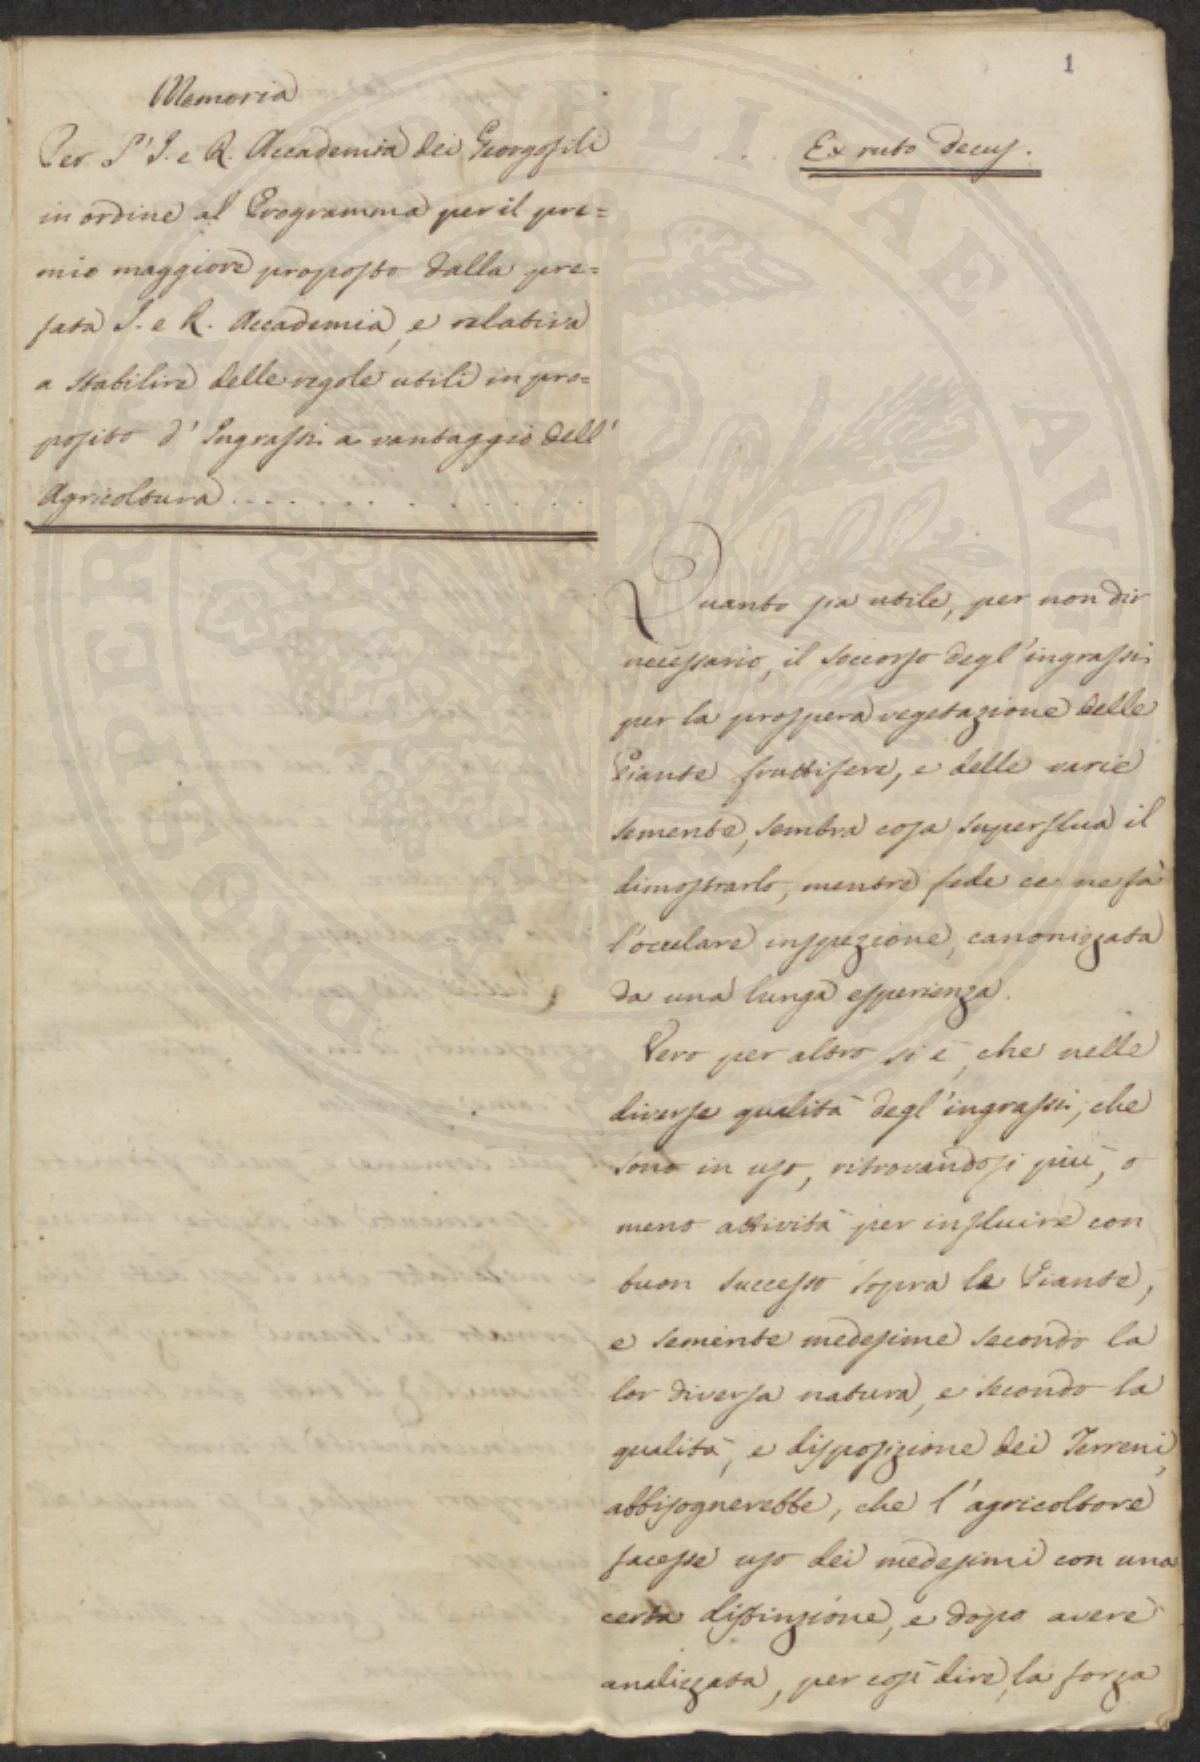 1
Memoria
Per l'I. e R. Accademia dei Georgofili
in ordine al Programma per il pre=
mio maggiore proposto dalla pre=
fata I. e R. Accademia, e relativa
a stabilire delle regole utili in pro=
posito d'Ingrassi a vantaggio dell'
Agricoltura . . . . . . . . . . . .
Ex ruto decus.
Quanto sia utile, per non dir
necessario, il soccorso degl'ingrassi
per la prospera vegetazione delle
Piante fruttifere, e delle varie
semente, sembra cosa superflua il
dimostrarlo, mentre fede ce ne fà
l'oculare inspezione, canonizzata
da una lunga esperienza.
Vero per altro si è, che nelle
diverse qualità degl'ingrassi, che
sono in uso, ritrovandosi più, o
meno attività per influire con
buon successo sopra le Piante,
e semente medesime secondo la
lor diversa natura, e secondo la
qualità, e disposizione dei Terreni,
abbisognerebbe, che l'agricoltore
facesse uso dei medesimi con una
certa distinzione, e dopo avere
analizzata, per così dire, la forza
PROSPERITATI PUBLICAE AUGENDAE